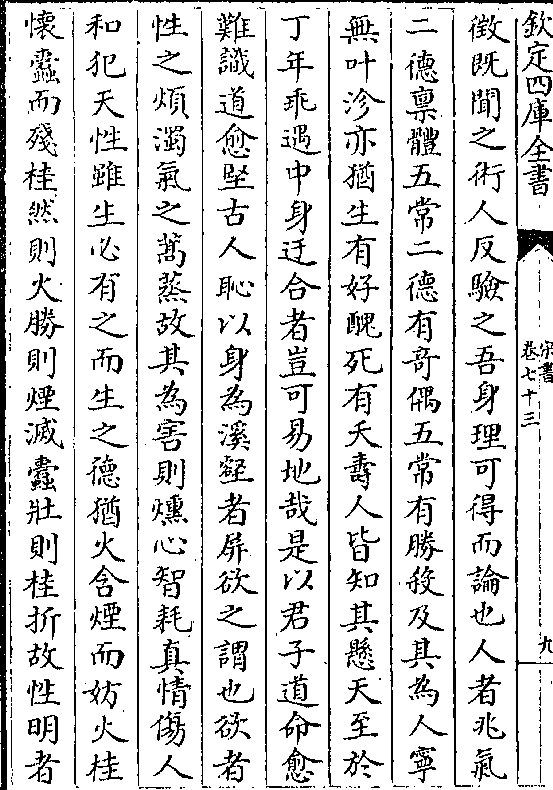 欽定四庫全書
宋書
卷七十三
九
徵既聞之術人反驗之吾身理可得而論也人者兆氣
二德禀體五常二德有奇偶五常有勝殺及其為人寧
無叶沴亦猶生有好醜死有夭壽人皆知其懸天至於
丁年乖遇中身迂合者豈可易地哉是以君子道命愈
難識道愈堅古人恥以身為溪壑者屏欲之謂也欲者
性之煩濁氣之蒿蒸故其為害則燻心智耗真情傷人
和犯天性雖生必有之而生之德猶火含煙而妨火桂
懷蠹而殘桂然則火勝則煙滅蠹壯則桂折故性明者